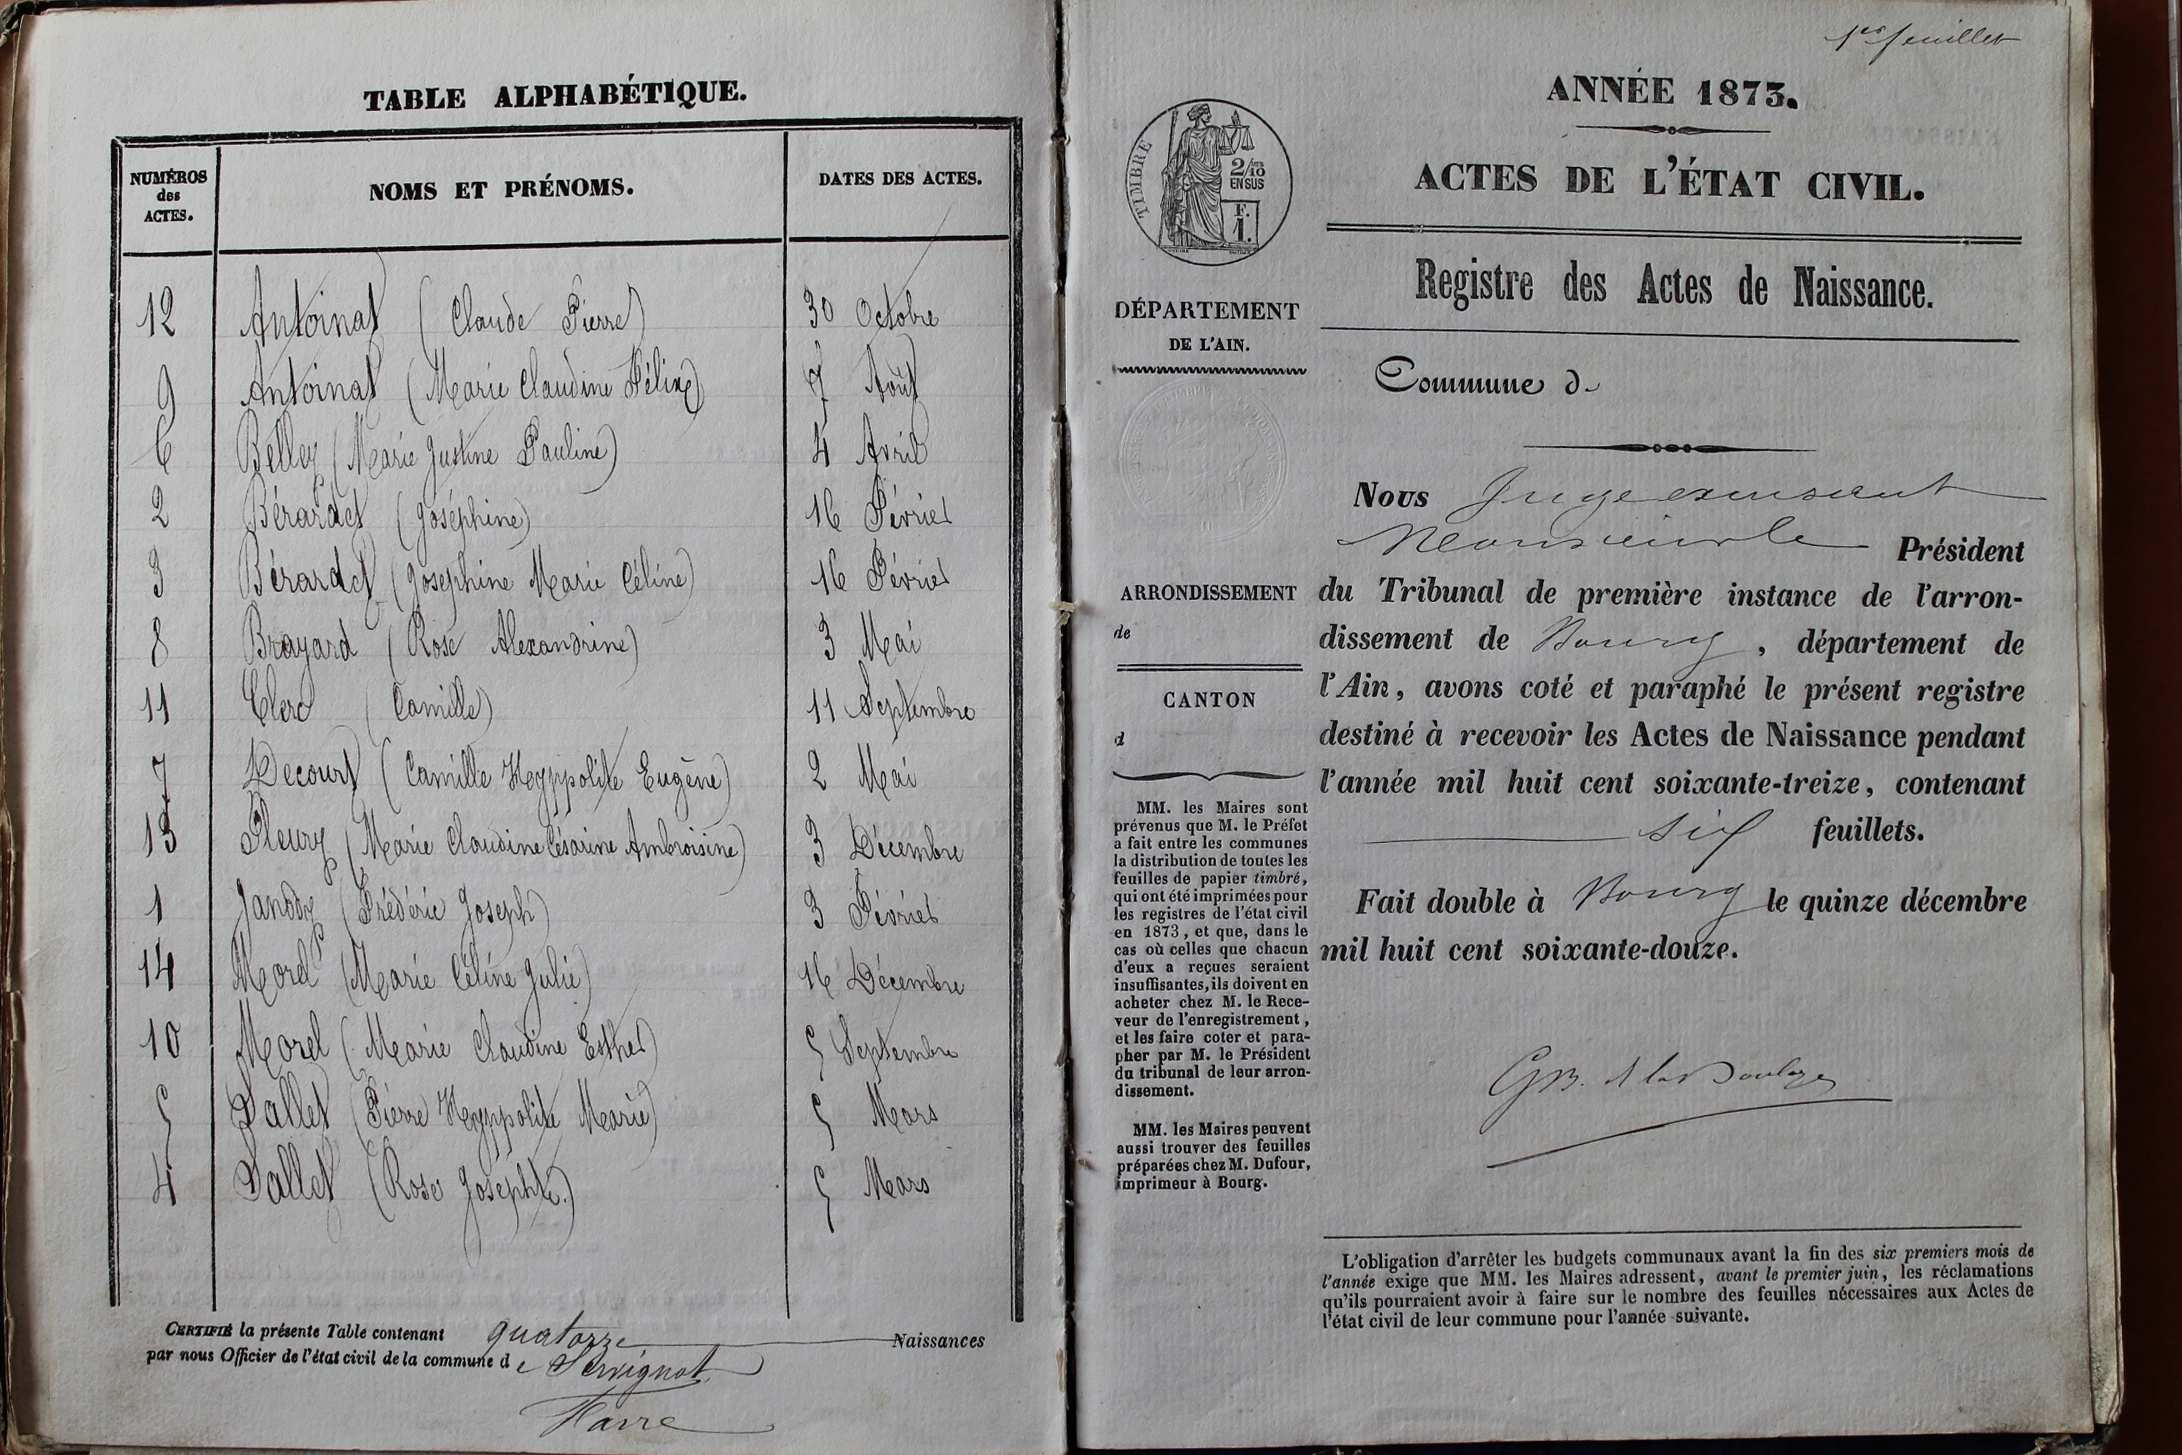 TABLE ALPHABÉTIQUE.
NUMÉROS
des
ACTES.
NOMS ET PRÉNOMS.
DATES DES ACTES.
12 Antoinat (Claude Pierre) 30 Octobre
9 Antoinat (Marie Claudine Félixe) 7 Août
6 Belley (Marie Justine Pauline) 4 Avril
2 Bérardet (Joséphine) 16 Février
3 Bérardet (Josephine Marie Céline) 16 Février
8 Brayard (Rose Alexandrine) 3 Mai
11 Clerc (Camille) 11 Septembre
7 Decourt (Camille Hyppolite Eugène) 2 Mai
13 Fleury (Marie Claudine Césarine Ambroisine) 3 Décembre
1 Janody (Frédéric Joseph) 3 Février
14 Morel (Marie Céline Julie) 16 Décembre
10 Morel (Marie Claudine Esther) 5 Septembre
5 Sallet (Pierre Hyppolite Marie) 5 Mars
4 Sallet (Rose Josephte.) 5 Mars
CERTIFIÉ la présente Table contenant quatorze Naissances
par nous Officier de l'état civil de la commune de Servignat
1er feuillet
ANNÉE 1873.
TIMBRE
2/10
EN SUS
F.
1.
ACTES DE L'ÉTAT CIVIL.
Registre des Actes de Naissance.
DÉPARTEMENT
DE L'AIN.
Commune d
ARRONDISSEMENT
de
CANTON
d
MM. les Maires sont
prévenus que M. le Préfet
a fait entre les communes
la distribution de toutes les
feuilles de papier timbré,
qui ont été imprimées pour
les registres de l'état civil
en 1873, et que, dans le
cas où celles que chacun
d'eux a reçues seraient
insuffisantes, ils doivent en
acheter chez M. le Rece-
veur de l'enregistrement,
et les faire coter et para-
pher par M. le Président
du tribunal de leur arron-
dissement.
MM. les Maires peuvent
aussi trouver des feuilles
préparées chez M. Dufour,
imprimeur à Bourg.
Nous Juge
Monsieur le Président
du Tribunal de première instance de l'arron-
dissement de Bourg, département de
l'Ain, avons coté et paraphé le présent registre
destiné à recevoir les Actes de Naissance pendant
l'année mil huit cent soixante-treize, contenant
six feuillets.
Fait double à Bourg le quinze décembre
mil huit cent soixante-douze.
L'obligation d'arrêter les budgets communaux avant la fin des six premiers mois de
l'année exige que MM. les Maires adressent, avant le premier juin, les réclamations
qu'ils pourraient avoir à faire sur le nombre des feuilles nécessaires aux Actes de
l'état civil de leur commune pour l'année suivante.